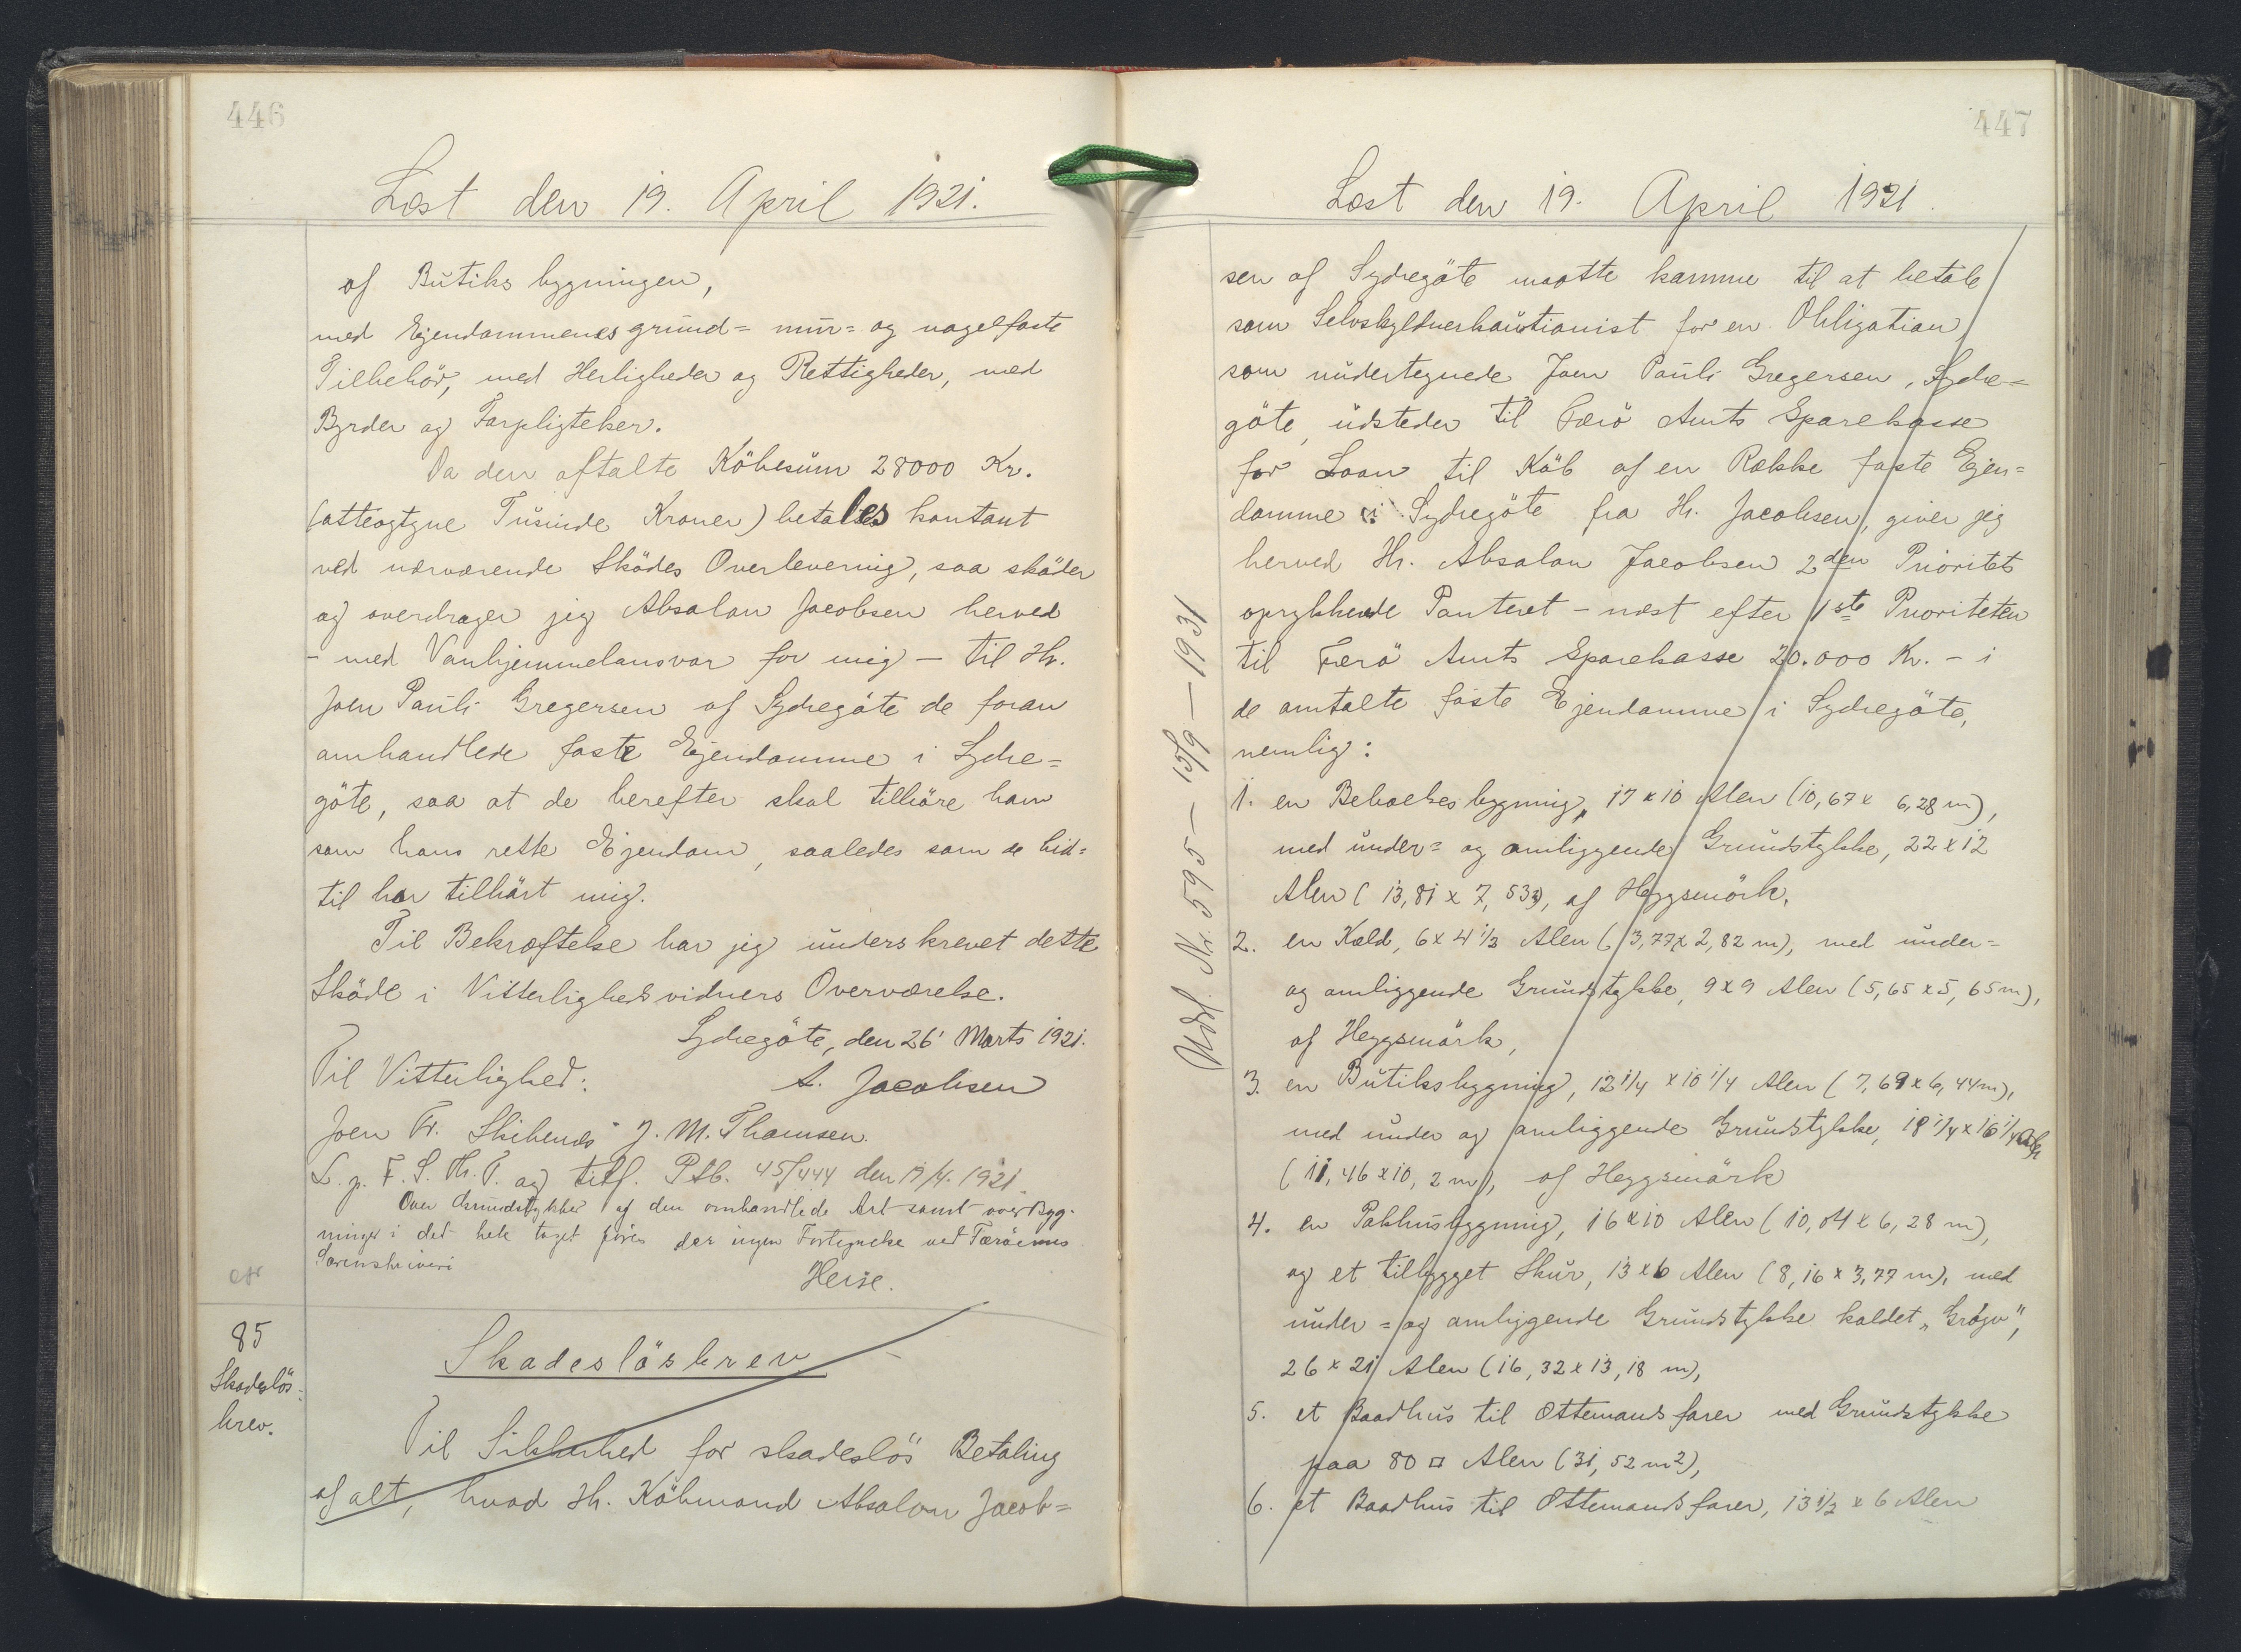 446
Læst den 19. April 1921.
af Butiks bygningen,
med Ejendommenes grund= mur= og nagelfaste
Tilbehör, med Herligheder og Rettigheder, med
Byrder og Forpligtelser.
Da den aftalte Köbesum 28000 Kr.
(otteogtyve Tusinde Kroner) betales kontant
ved nærværende Sködes Overlevering, saa sköder
og overdrager jeg Absalon Jacobsen herved
- med Vanhjemmelansvar for mig - til Hr.
Joen Pauli Gregersen af Sydregöte de foran
omhandlede faste Ejendomme i Sydre=
göte, saa at de herefter skal tilhöre ham
som hans rette Ejendom, saaledes som de hid=
til har tilhört mig.
Til Bekræftelse har jeg underskrevet dette
Sköde i Vitterlighedsvidners Overværelse.
Sydregöte, den 26' Marts 1921.
Til Vitterlighed: A. Jacobsen
Joen Fr. J. M. Thomsen.
L. p. F. S. Th. T. og tilf. Ptb. 45/444 den 19/4. 1921.
Over Grundstykker af den omhandlede Art samt over Byg-
ninger i det hele taget föres der ingen Fortegnelse ved Færöernes
Sorenskriveri
Heise.
85
Skadeslös=
brev.
Skadeslösbrev
Til Sikkerhed for skadeslös Betaling
af alt, hvad Hr. Köbmand Absalon Jacob=
447
Læst den 19. April 1921.
sen af Sydregöte maatte komme til at betale
som Selvskyldnerkautionist for en Obligation,
som undertegnede Joen Pauli Gregersen, Sydre=
göte, udsteder til Færö Amts Sparekasse
for Laan til Köb af en Række faste Ejen=
domme i Sydregöte fra Hr. Jacobsen, giver jeg
herved Hr. Absalon Jacobsen 2den Prioritets
oprykkende Panteret - næst efter 1ste Prioriteten
til Færö Amts Sparekasse 20.000 Kr. - i
de omtalte faste Ejendomme i Sydregöte,
nemlig:
1. en Beboelsesbygning, 17 x 10 Alen (10,67 x 6,28 m),
med under= og omliggende Grundstykke, 22 x 12
Alen (13,81 x 7,53), af Heygsmörk,
2. en Kæld, 6 x 4 1/2 Alen (3,77 x 2,82 m), med under=
og omliggende Grundstykke, 9 x 9 Alen (5,65 x 5,65 m),
af Heygsmörk,
3. en Butiksbygning, 12 1/4 x 10 1/4 Alen (7,69 x 6,44 m),
med under og omliggende Grundstykke, 18 1/4 x 16 1/4 Alen
(11,46 x 10,2 m), af Heygsmörk
4. en Pakhusbygning, 16 x 10 Alen (10,04 x 6,28 m),
og et tilbygget Skur, 13 x 6 Alen (8,16 x 3,77 m), med
under= og omliggende Grundstykke kaldet „Grógv",
26 x 21 Alen (16,32 x 13,18 m),
5. et Baadhus til Ottemandsfarer med Grundstykke
paa 80 □ Alen (31,52 m2),
6. et Baadhus til Ottemandsfarer, 13 1/2 x 6 Alen
Udsl. Nr. 595 - 15/9 - 1931